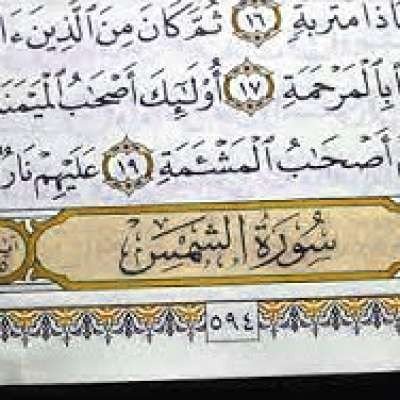 ذَا مَتْرَبَةٍ ١٦ ثُمَّ كَانَ مِنَ الَّذِينَ ءَا
بِالْمَرْحَمَةِ ١٧ أُوْلَٰٓئِكَ أَصْحَٰبُ الْمَيْمَنَ
أَصْحَٰبُ الْمَشْـَٔمَةِ ١٩ عَلَيْهِمْ نَارٌ
سُورَةُ الشَّمْسِ
٥٩٤